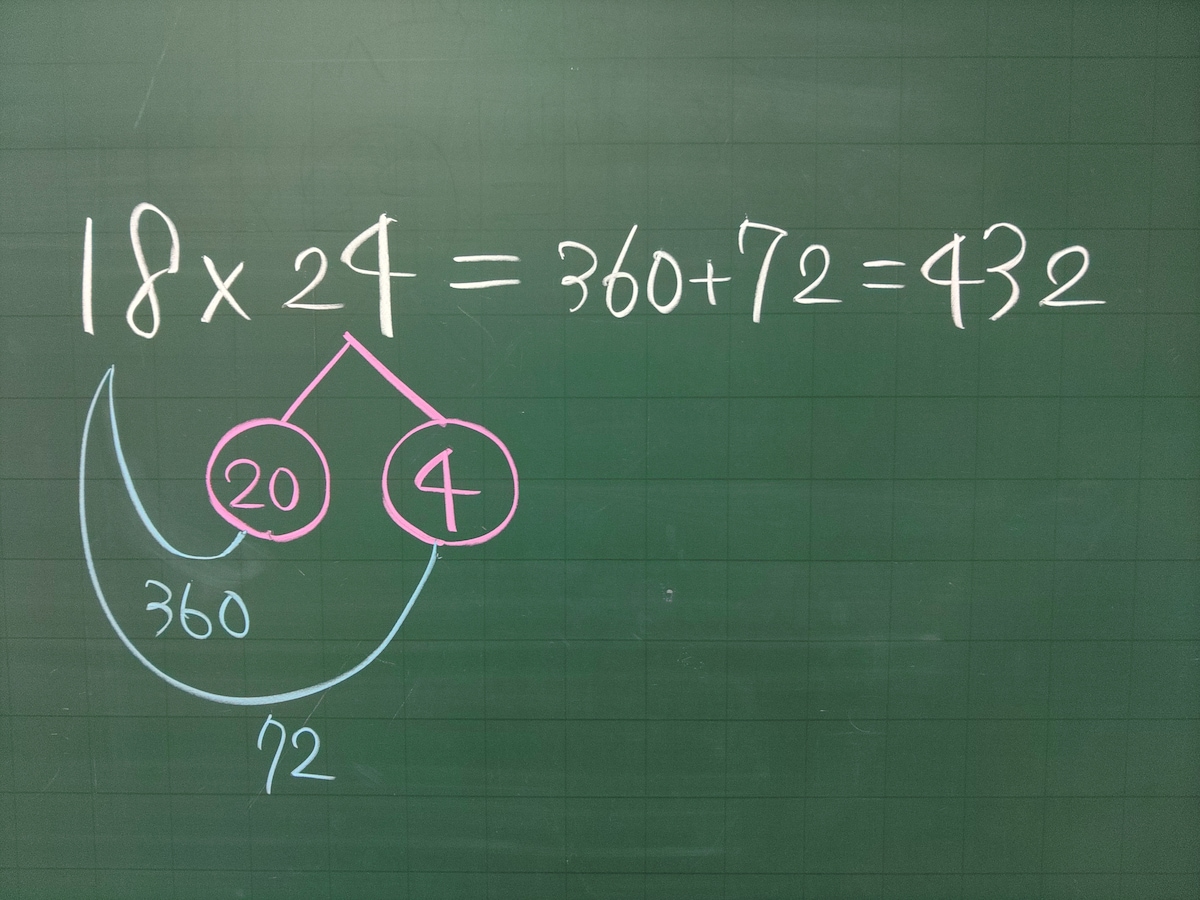 18x24=360+72=432
20 4
360
72